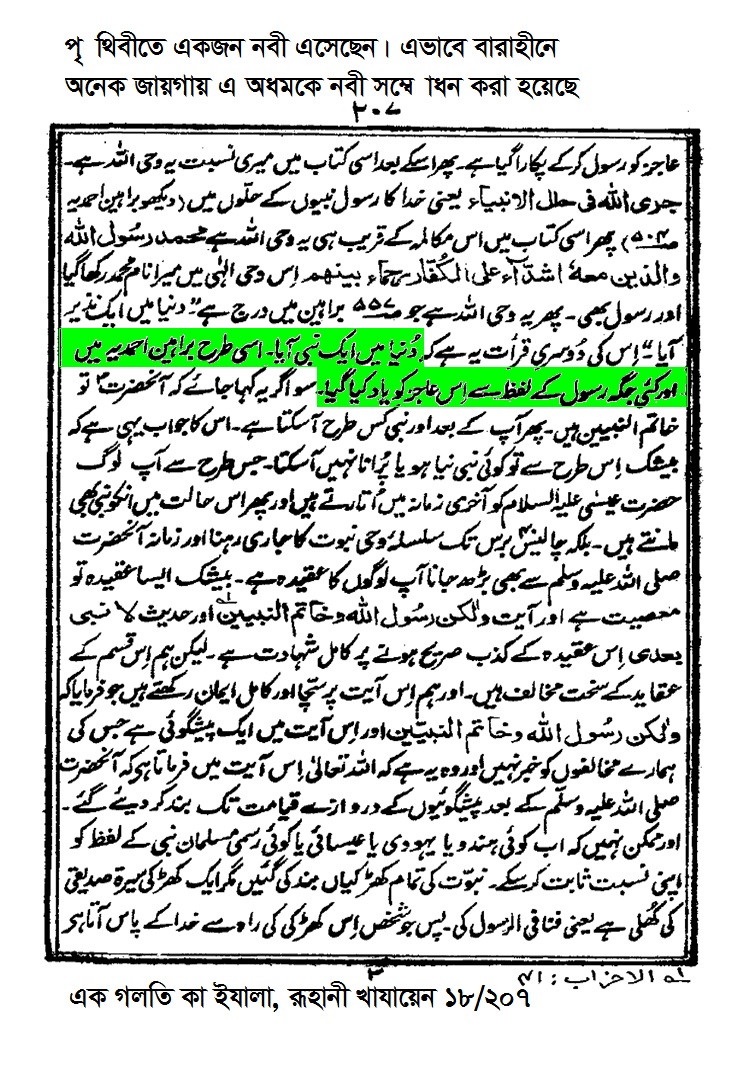 পৃ থিবীতে একজন নবী এসেছেন। এভাবে বারাহীনে
অনেক জায়গায় এ অধমকে নবী সম্বে াধন করা হয়েছে
۲۰۷
عاجز کو رسول کرکے پکارا گیا ہے۔ پھر اسکے بعد اسی کتاب میں میری نسبت یہ وحی اللہ ہے۔
جری اللہ فی حلل الانبیاء یعنی خدا کا رسول نبیوں کے حلّوں میں (دیکھو براہین احمدیہ
ص۵۰۴) پھر اسی کتاب میں اس مکالمہ کے قریب ہی یہ وحی اللہ ہے محمد رسول اللہ
والذین معہٗ اشدّآء علی الکفّار رحماء بینھم اِس وحی الٰہی میں میرا نام محمد رکھا گیا
اور رسول بھی۔ پھر یہ وحی اللہ ہے جو ص۵۵۷ براہین میں درج ہے "دنیا میں ایک نذیر
آیا" اِس کی دُوسری قرأت یہ ہے کہ دُنیا میں ایک نبی آیا۔ اسی طرح براہین احمدیہ میں
اور کئی جگہ رسول کے لفظ سے اِس عاجز کو یاد کیا گیا۔ سو اگر یہ کہا جائے کہ آنحضرتؐ تو
خاتم النبیین ہیں۔ پھر آپ کے بعد اور نبی کس طرح آسکتا ہے۔ اس کا جواب یہی ہے کہ
بیشک اِس طرح سے تو کوئی نبی نیا ہو یا پُرانا نہیں آسکتا۔ جس طرح سے آپ لوگ
حضرت عیسیٰ علیہ السلام کو آخری زمانہ میں اُتارتے ہیں اور پھر اس حالت میں انکو نبی بھی
مانتے ہیں۔ بلکہ چالیس۴۰ برس تک سلسلہ وحی نبوت کا جاری رہنا اور زمانہ آنحضرت
صلی اللہ علیہ وسلم سے بھی بڑھ جانا آپ لوگوں کا عقیدہ ہے۔ بیشک ایسا عقیدہ تو
معصیت ہے اور آیت ولٰکن رسُول اللہ وخاتم النبیین۱؎ اور حدیث لا نبی
بعدی اِس عقیدہ کے کذب صریح ہونے پر کامل شہادت ہے۔ لیکن ہم اِس قسم کے
عقاید کے سخت مخالف ہیں۔ اور ہم اِس آیت پر سچّا اور کامل ایمان رکھتے ہیں جو فرمایا کہ
ولٰکن رسُول اللہ وخاتم النبیّین اور اِس آیت میں ایک پیشگوئی ہے جس کی
ہمارے مخالفوں کو خبر نہیں اور وہ یہ ہے کہ اللہ تعالیٰ اِس آیت میں فرماتا ہی کہ آنحضرت
صلی اللہ علیہ وسلّم کے بعد پیشگوئیوں کے دروازے قیامت تک بند کر دیئے گئے۔
اور ممکن نہیں کہ اب کوئی ہندو یا یہودی یا عیسائی یا کوئی رسمی مسلمان نبی کے لفظ کو
اپنی نسبت ثابت کر سکے۔ نبوّت کی تمام کھڑکیاں بند کی گئیں مگر ایک کھڑکی سیرۃ صدیقی
کی کُھلی ہے یعنی فنا فی الرّسول کی۔ پس جو شخص اِس کھڑکی کی راہ سے خدا کے پاس آتا ہر
۳
۱؎ الاحزاب: ۴۱
এক গলতি কা ইযালা, রূহানী খাযায়েন ১৮/২০৭